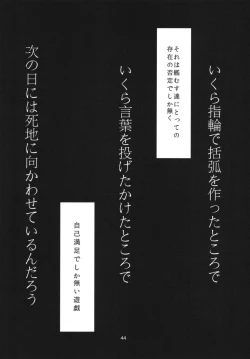 いくら指輪で括弧を作ったところで
それは艦むす達にとっての
存在の否定でしか無く
いくら言葉を投げたかけたところで
自己満足でしか無い遊戯
次の日には死地に向かわせているんだろう
44